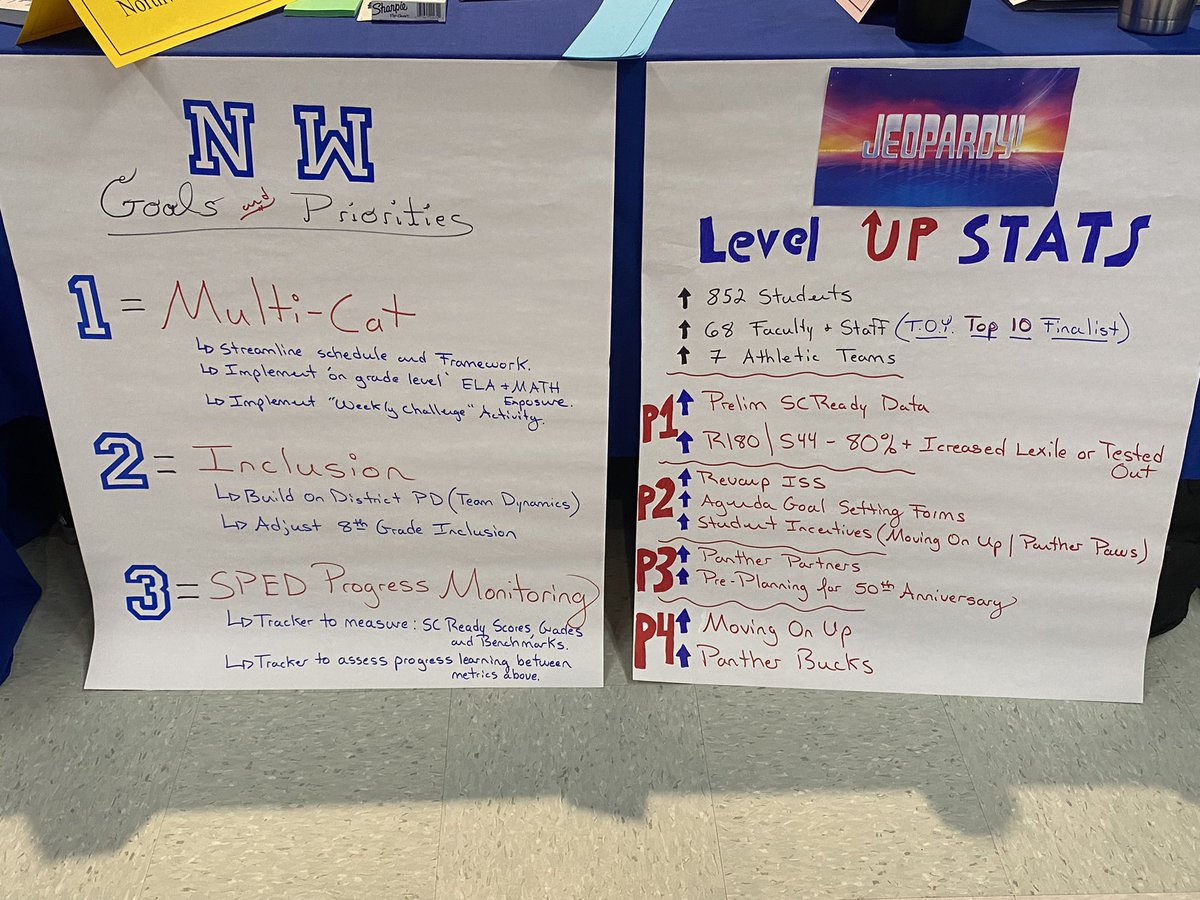 Sharpie
N W
Goals and Priorities
1 = Multi-Cat
↳ Streamline schedule and Framework.
↳ Implement 'on grade level' ELA + MATH
Exposure.
↳ Implement "Weekly Challenge" Activity.
2 = Inclusion
↳ Build on District PD (Team Dynamics)
↳ Adjust 8th Grade Inclusion
3 = SPED Progress Monitoring
↳ Tracker to measure: SC Ready Scores, Grades
and Benchmarks.
↳ Tracker to assess progress learning between
metrics above.
JEOPARDY!
Level UP STATS
↑ 852 Students
↑ 68 Faculty + Staff (T.O.Y. Top 10 Finalist)
↑ 7 Athletic Teams
P1 ↑ Prelim SCReady Data
↑ R180 | S44 - 80% + Icreased Lexile or Tested
Out
P2 ↑ Revamp ISS
↑ Agenda Goal Setting Forms
↑ Student Incentives (Moving On Up | Panther Paws)
P3 ↑ Panther Partners
↑ Pre-Planning for 50th Anniversary
P4 ↑ Moving On Up
↑ Panther Bucks